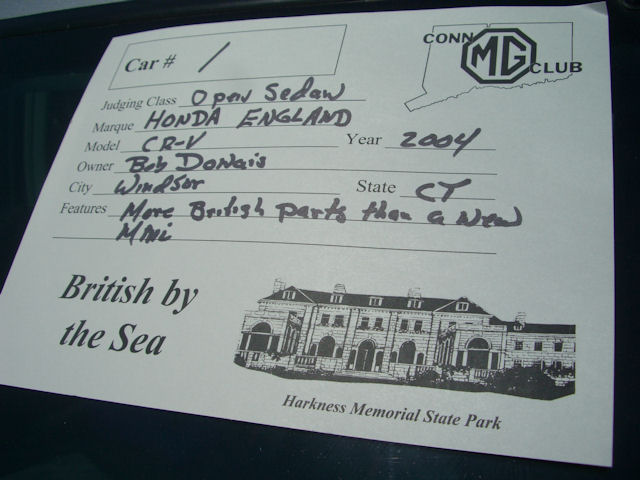 Car # 1
CONN MG CLUB
Judging Class Open Sedan
Marque HONDA ENGLAND
Model CR-V Year 2004
Owner Bob Donais
City Windsor State CT
Features More British parts than a New
Mini
British by
the Sea
Harkness Memorial State Park